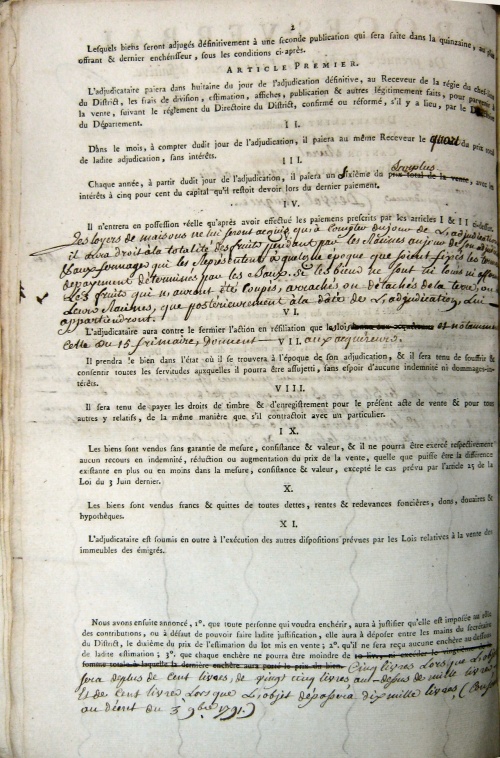 2
Lesquels biens seront adjugés définitivement à une seconde publication qui sera faite dans la quinzaine, au plus
offrant & dernier enchérisseur, sous les conditions ci-après.
ARTICLE PREMIER.
L'adjudicataire paiera dans huitaine du jour de l'adjudication définitive, au Receveur de la régie du chef-lieu
du District, les frais de division, estimation, affiches, publication & autres légitimement faits, pour parvenir à
la vente, suivant le réglement du Directoire du District, confirmé ou réformé, s'il y a lieu, par le
du Département.
II.
Dans le mois, à compter dudit jour de l'adjudication, il paiera au même Receveur le quart du prix total
de ladite adjudication, sans intérêts.
III.
surplus
Chaque année, à partir dudit jour de l'adjudication, il paiera un sixième du prix total de la vente, avec les
intérêts à cinq pour cent du capital qu'il restoit devoir lors du dernier paiement.
IV.
Il n'entrera en possession réelle qu'après avoir effectué les paiemens prescrits par les articles I & II ci-dessus.
Les loyers de maisons ne lui seront acquis qu'à compter du jour de L'adjudication
il aura droit à la totalité des fruits pendant par les Racines au jour de son adjudication
& aux fermages qui les Représentent à quelque époque que soient fixés les termes
de payement déterminés par les Baux. si les biens ne sont ni loués ni affermés
Les fruits qui n'auront été coupés, arrachés ou détachés de la terre, ou
leurs Racines, que postérieurement à la date de L'adjudication, lui
appartiendront.
VI.
L'adjudicataire aura contre le fermier l'action en résiliation que les lois et notamment
celle du 15 frimaire, donnent VII. aux acquéreurs.
Il prendra le bien dans l'état où il se trouvera à l'époque de son adjudication, & il sera tenu de souffrir &
consentir toutes les servitudes auxquelles il pourra être assujetti, sans espoir d'aucune indemnité ni dommages-in-
térêts.
VIII.
Il sera tenu de payer les droits de timbre & d'enregistrement pour le présent acte de vente & pour tous
autres y relatifs, de la même manière que s'il contractoit avec un particulier.
IX.
Les biens sont vendus sans garantie de mesure, consistance & valeur, & il ne pourra être exercé respectivement
aucun recours en indemnité, réduction ou augmentation du prix de la vente, quelle que puisse être la différence
existante en plus ou en moins dans la mesure, consistance & valeur, excepté le cas prévu par l'article 25 de la
Loi du 3 Juin dernier.
X.
Les biens sont vendus francs & quittes de toutes dettes, rentes & redevances foncières, dons, douaires &
hypothèques.
XI.
L'adjudicataire est soumis en outre à l'exécution des autres dispositions prévues par les Lois relatives à la vente des
immeubles des émigrés.
Nous avons ensuite annoncé, 1º. que toute personne qui voudra enchérir, aura à justifier qu'elle est imposée au rôle
des contributions, ou à défaut de pouvoir faire ladite justification, elle aura à déposer entre les mains du secrétaire
du District, le dixième du prix de l'estimation du lot mis en vente; 2º. qu'il ne sera reçu aucune enchère au-dessous
de ladite estimation; 3º. que chaque enchère ne pourra être moindre de
somme totale à laquelle la dernière enchère aura porté le prix du bien. Cinq livres Lorsque L'objet
sera de plus de Cent livres, de vingt cinq livres au-dessus de mille livres
& de cent livres Lorsque L'objet dépassera dix mille livres. (
au décret du 3 9bre 1791.)